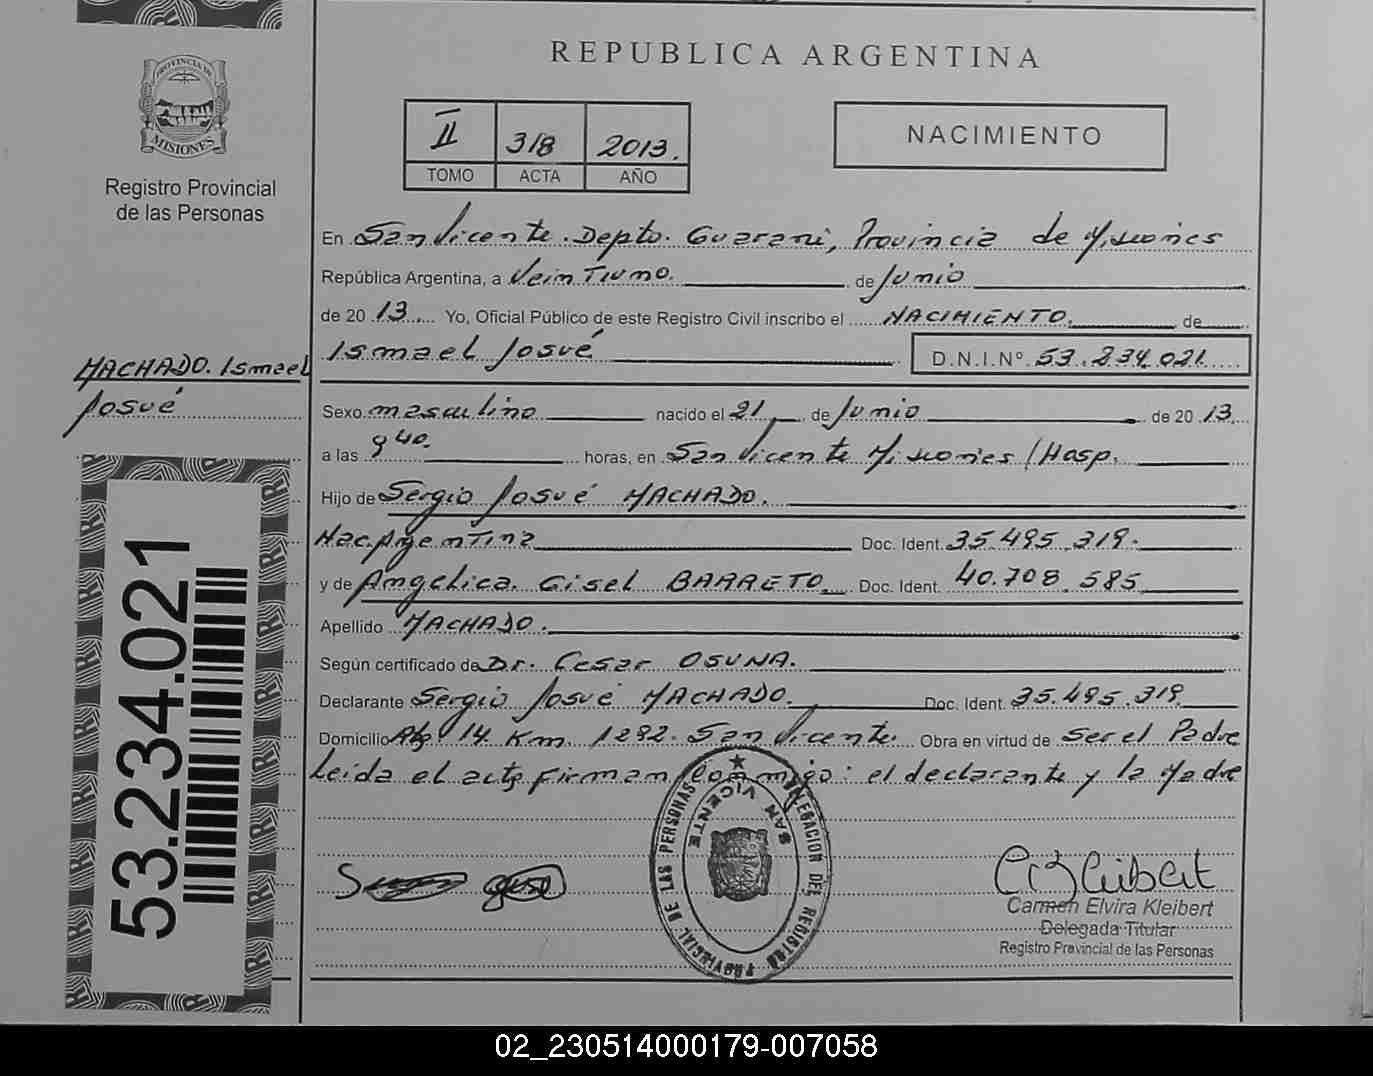 REPUBLICA ARGENTINA
PROVINCIA DE MISIONES
Registro Provincial
de las Personas
II 318 2013.
TOMO ACTA AÑO
NACIMIENTO
En San Vicente. Depto. Guarani, Provincia de Misiones
República Argentina, a Veintiuno. de Junio
de 20 13 Yo, Oficial Público de este Registro Civil inscribo el NACIMIENTO. de
Ismael Josué D.N.I.Nº 53.234.021
MACHADO. Ismael
Josué
Sexo masculino nacido el 21 de Junio de 20 13
a las 9 40. horas, en San Vicente Misiones/Hosp.
Hijo de Sergio Josué MACHADO.
Nac. Argentina Doc. Ident. 35.495.319.
y de Angélica. Gisel BARRETO Doc. Ident. 40.708.585
Apellido MACHADO.
Según certificado de Dr. Cesar OSUNA.
Declarante Sergio Josué MACHADO. Doc. Ident. 35.495.319.
Domicilio 14 Km. 1282. San Vicente. Obra en virtud de Ser el Padre
Leida el acta firman conmigo: el declarante y la Madre
53.234.021
DELEGACION DEL REGISTRO PROVINCIAL DE LAS PERSONAS
SAN VICENTE
Carmen Elvira Kleibert
Delegada Titular
Registro Provincial de las Personas
02_230514000179-007058